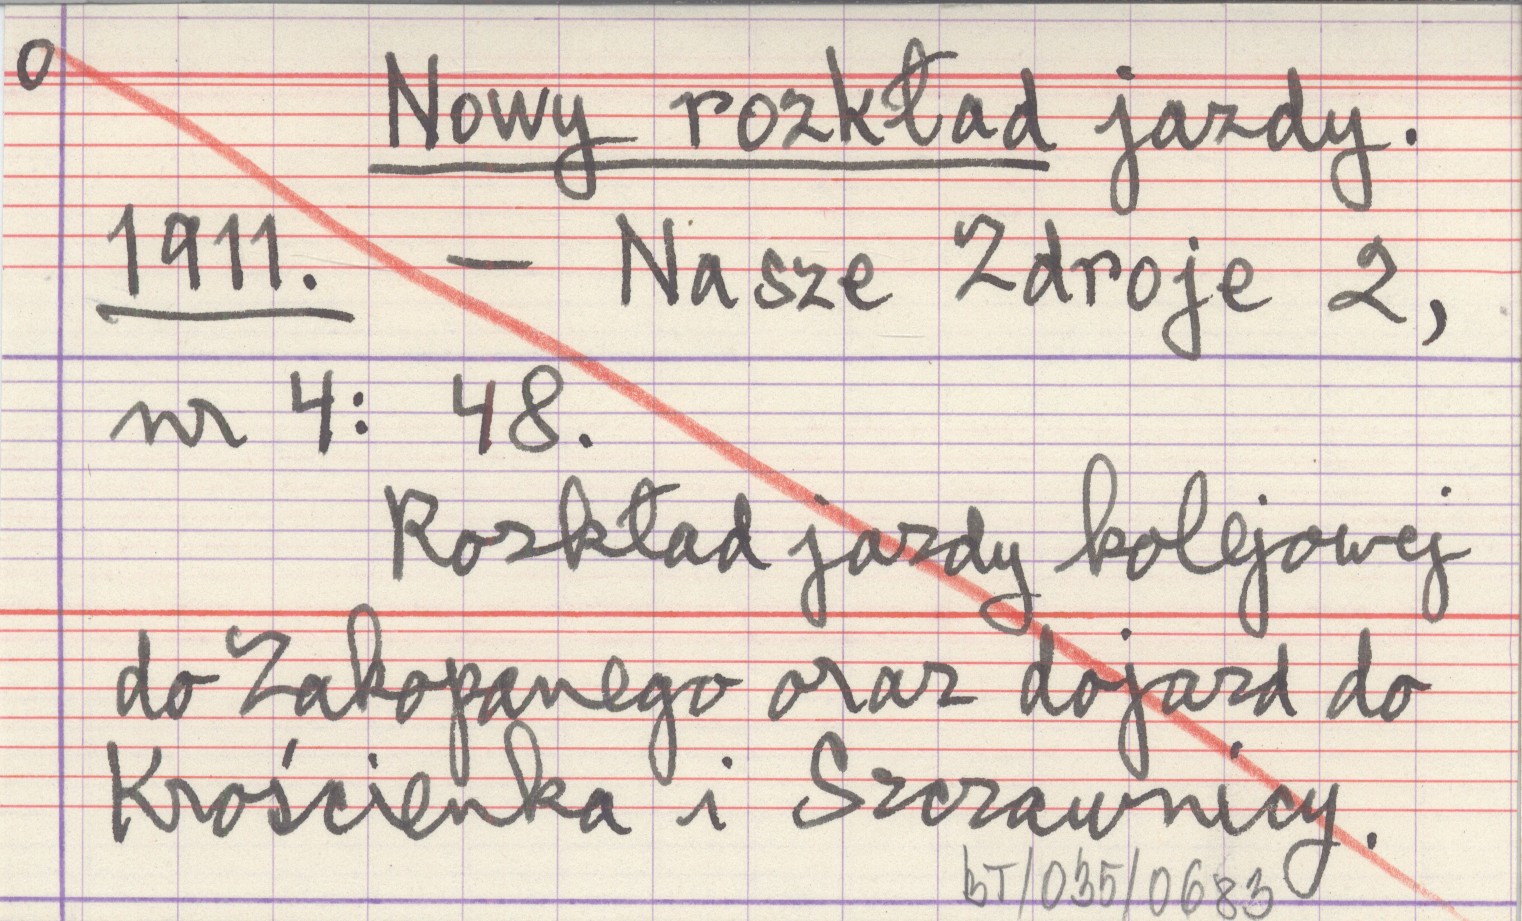 O
Nowy rozkład jazdy.
1911. – Nasze Zdroje 2,
nr 4: 48.
Rozkład jazdy kolejowej
do Zakopanego oraz dojazd do
Krościenka i Szczawnicy.
BT/035/0683